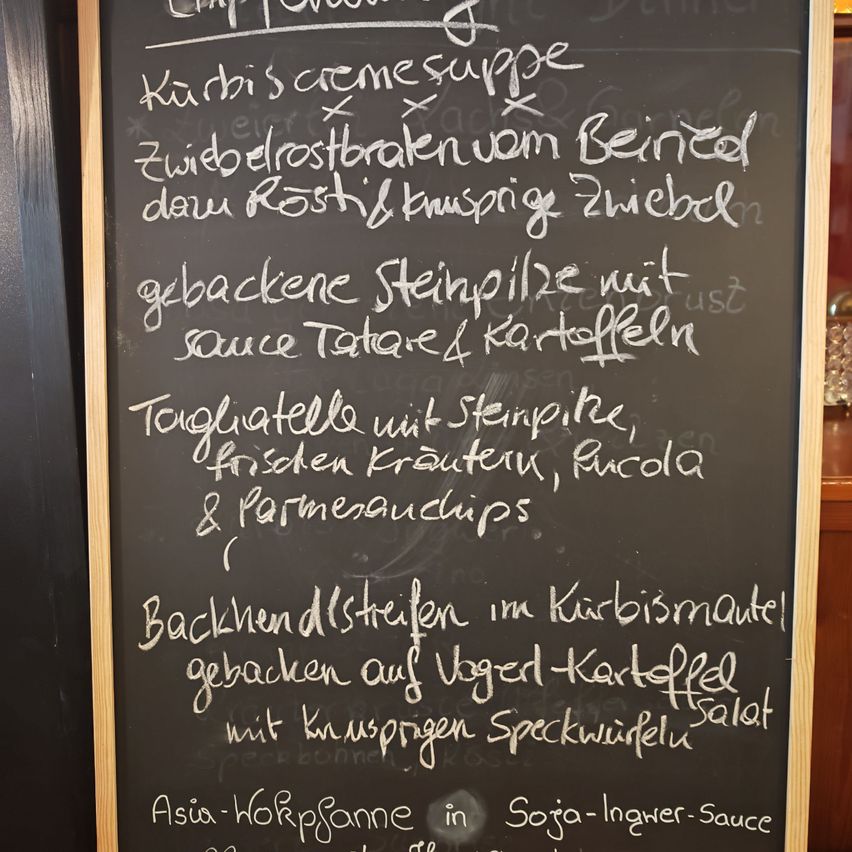 Empfehlung
Kürbiscremesuppe
x x x
Zwiebelrostbraten vom Beiried
dazu Rösti & knusprige Zwiebel
gebackene Steinpilze mit
sauce Tatare & Kartoffeln
Tagliatelle mit Steinpilze,
frischen Kräutern, Rucola
& Parmesanchips
Backhendlstreifen im Kürbismantel
gebacken auf Vogerl-Kartoffel
Salat
mit knusprigen Speckwürfeln
Asia-Wokpfanne in Soja-Ingwer-Sauce